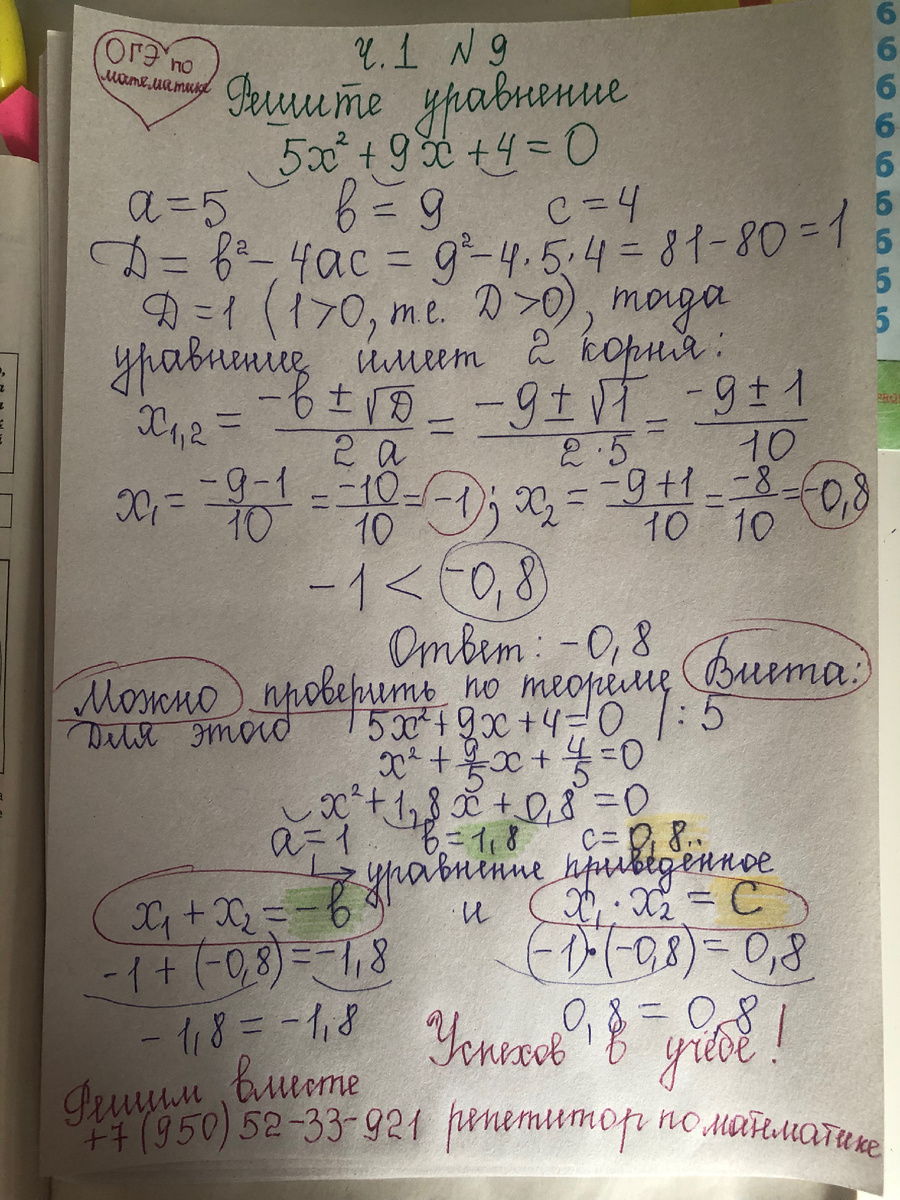 ОГЭ по
математике
Ч.1 №9
Решите уравнение
5x² + 9x + 4 = 0
a = 5 в = 9 c = 4
D = в² - 4ac = 9² - 4·5·4 = 81 - 80 = 1
D = 1 (1 > 0, т.е. D > 0), тогда
уравнение имеет 2 корня:
x₁,₂ = (-в ± √D)/(2a) = (-9 ± √1)/(2·5) = (-9 ± 1)/10
x₁ = (-9-1)/10 = -10/10 = -1; x₂ = (-9+1)/10 = -8/10 = -0,8
-1 < -0,8
Ответ: -0,8
Можно проверить по теореме Виета:
Для этого 5x² + 9x + 4 = 0 |: 5
x² + 9/5x + 4/5 = 0
x² + 1,8x + 0,8 = 0
a = 1 в = 1,8 c = 0,8..
↳ уравнение приведённое
x₁ + x₂ = -в и x₁·x₂ = c
-1 + (-0,8) = -1,8 (-1)·(-0,8) = 0,8
-1,8 = -1,8 0,8 = 0,8
Успехов в учёбе!
Решим вместе
+7(950)52-33-921 репетитор по математике
б
б
б
б
б
б
б
б
б